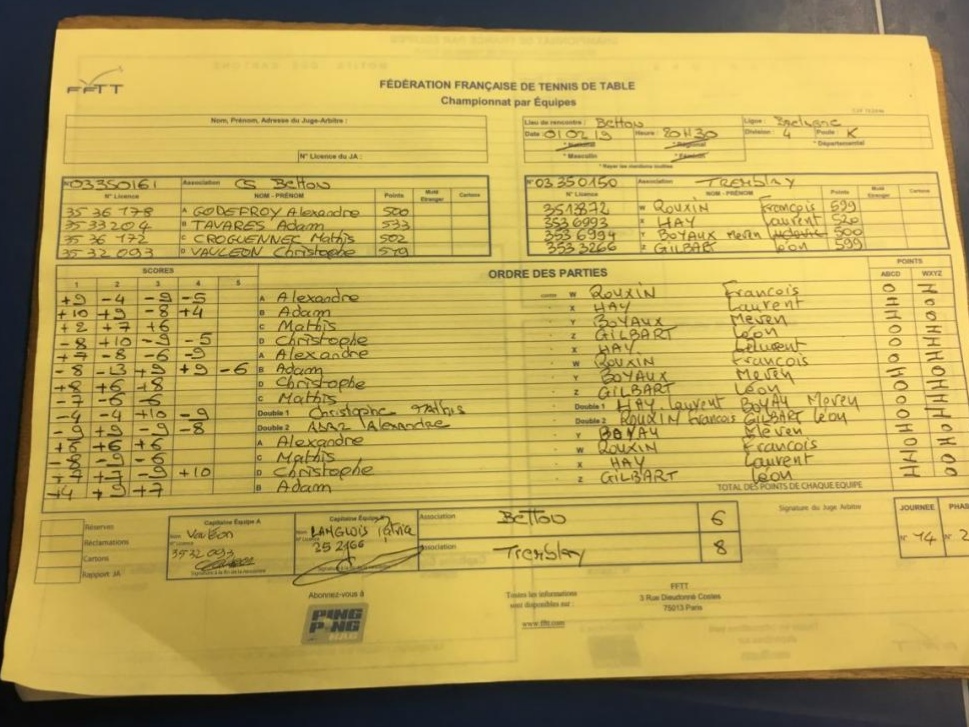 FFTT
FÉDÉRATION FRANÇAISE DE TENNIS DE TABLE
Championnat par Équipes
Nom, Prénom, Adresse du Juge-Arbitre :
N° Licence du JA :
Lieu de rencontre : Betton Ligue : Bretagne
Date 01 02 19 Heure : 20H30 Division : 4 Poule : K
* National * Régional * Départemental
* Masculin * Féminin
* Rayer les mentions inutiles
N° 03350161 Association CS Betton
N° Licence NOM - PRÉNOM Points Muté Etranger Cartons
35 36 178 A GODEFROY Alexandre 500
35 33 204 B TAVARES Adam 533
35 36 172 C CROGUENNEC Mathis 502
35 32 093 D VAULEON Christophe 579
N° 03 350150 Association TREMBLAY
N° Licence NOM - PRÉNOM Points Muté Etranger Cartons
3513872 W ROUXIN François 599
353 6993 X HAY Laurent 520
353 6994 Y BOYAUX Meven 500
353 3266 Z GILBART Léon 599
SCORES ORDRE DES PARTIES POINTS
1 2 3 4 5 ABCD WXYZ
+9 -4 -9 -5 A Alexandre contre W ROUXIN François O H
+10 +9 -8 +4 B Adam X HAY Laurent H O
+2 +7 +6 C Mathis Y BOYAUX Meven H O
-8 +10 -9 -5 D Christophe Z GILBART Léon O H
+7 -8 -6 -9 A Alexandre X HAY Laurent O H
-8 -13 +9 +9 -6 B Adam W ROUXIN François O H
+8 +6 +8 D Christophe Y BOYAUX Meven H O
-7 -6 -6 C Mathis Z GILBART Léon O H
-4 -4 +10 -9 Double 1 Christophe Mathis Double 1 HAY Laurent BOYAU Meven O H
-9 +9 -9 -8 Double 2 Alexandre Double 2 ROUXIN François GILBART Léon O H
+5 +6 +6 A Alexandre Y BOYAU Meven H O
-8 -9 -6 C Mathis W ROUXIN François O H
+7 +7 -9 +10 D Christophe X HAY Laurent H O
+4 +9 +7 B Adam Z GILBART Léon H O
TOTAL DES POINTS DE CHAQUE ÉQUIPE
Réserves
Réclamations
Cartons
Rapport JA
Capitaine Équipe A
Nom Vauléon
3532 093
Capitaine Équipe
LANGLOIS
25 2166
Association Betton 6
Association Tremblay 8
Signature du Juge Arbitre
JOURNEE PHAS
N° 14 N° 2
Abonnez-vous à
PING PONG MAG
Toutes les informations
sont disponibles sur :
www.fftt.com
FFTT
3 Rue Dieudonné Costes
75013 Paris